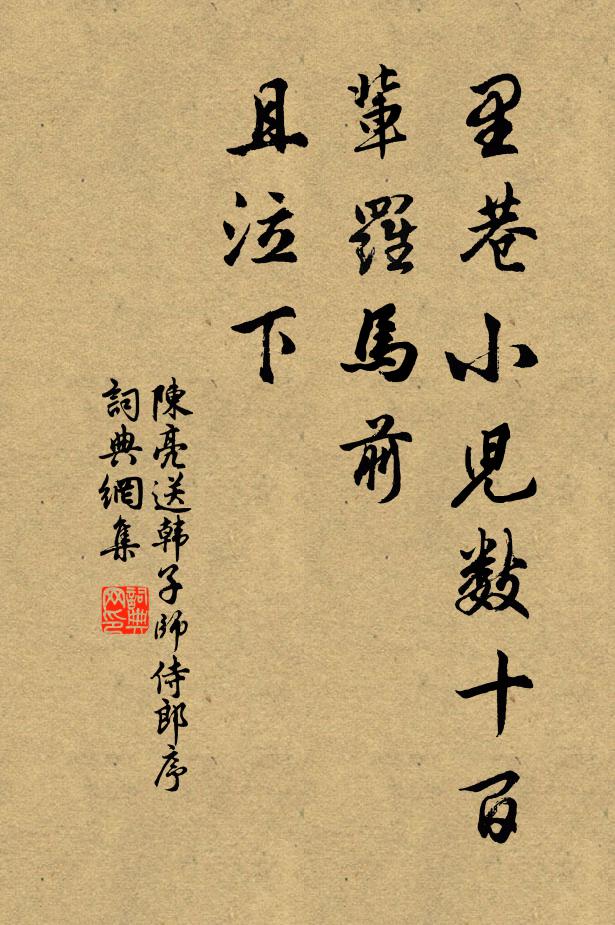 里巷小児数十百
輩羅馬前
且泣下
陳亮送韩子師侍郎序
詞典網集
詞典
网印